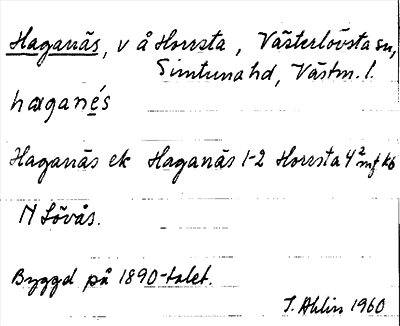 Haganäs, v å Horrsta, Västerlövsta sn,
Simtuna hd, Västm. l.
haganés
Haganäs ek Haganäs 1-2 Horrsta 4² mf kb
N Lövås.
Byggd på 1890-talet.
I. Ahlin 1960